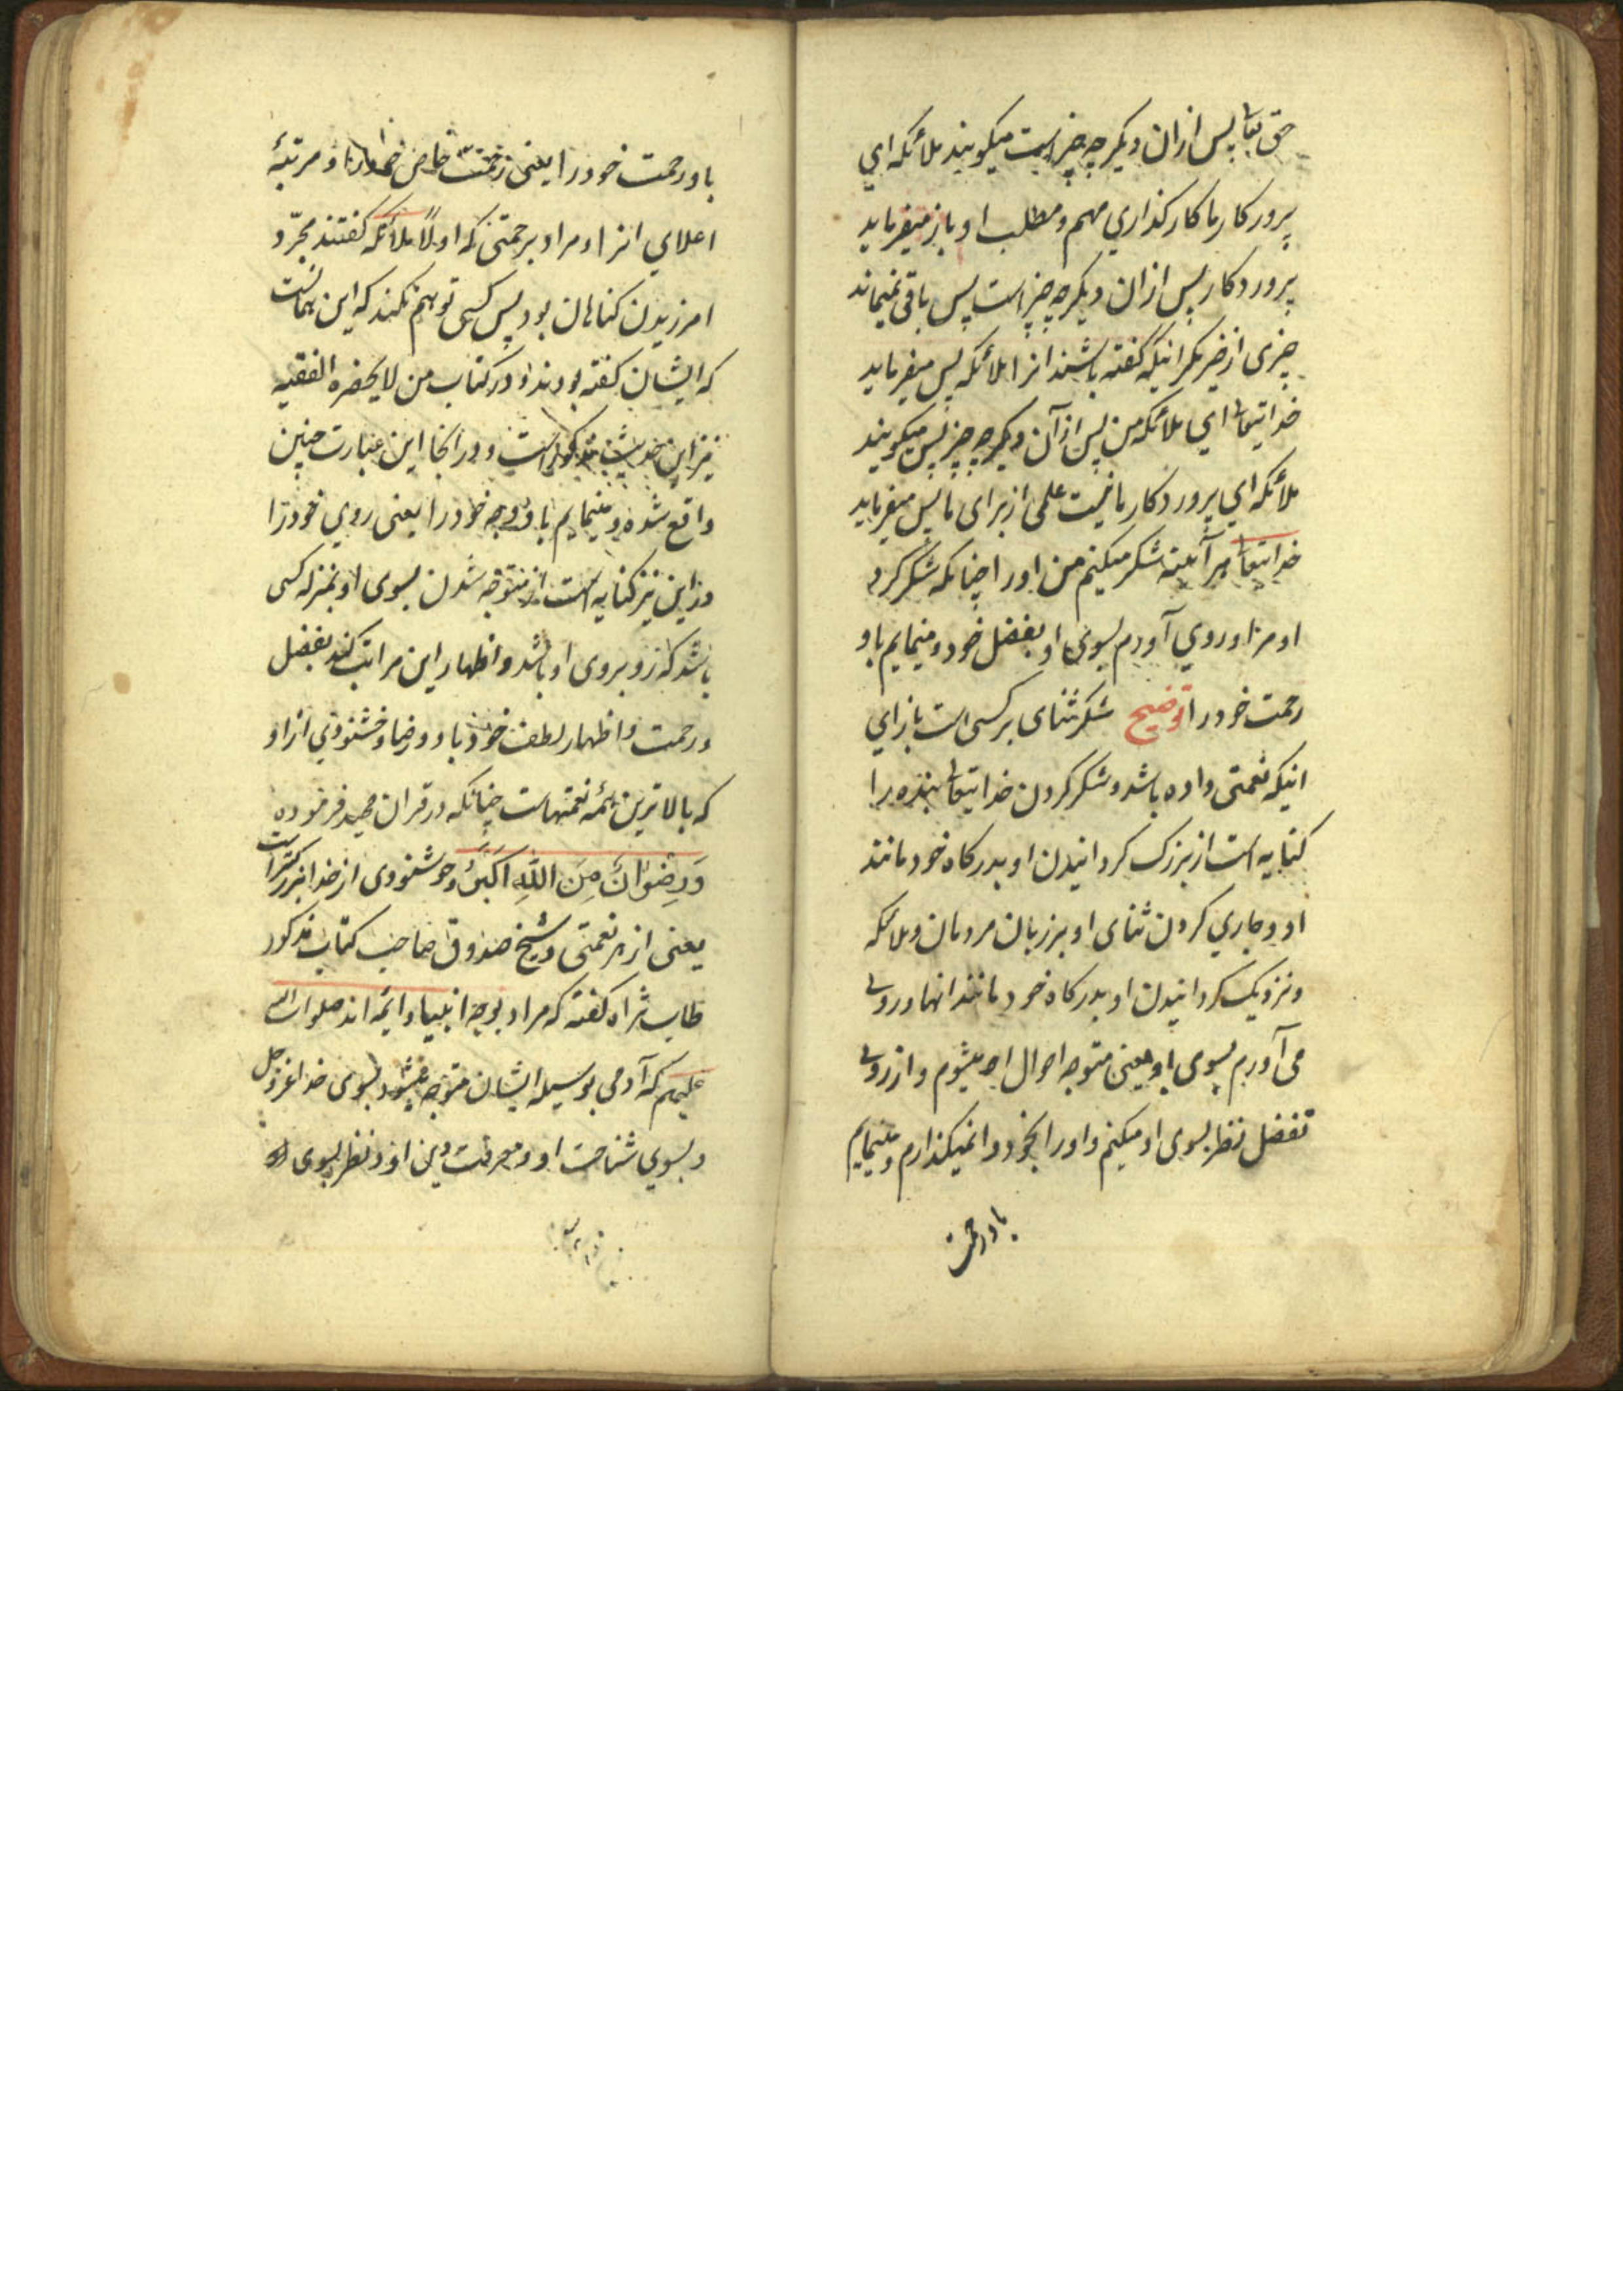 حق تعا پس ازان دیکر چه چیز است میکویند ملائکه ای
پرورکار ما کارکذاري مهم و مطلب او باز میفرماید
پروردکار پس ازان دیکر چه چیز است پس باقی نمیماند
چیزی از خیر مکر انیکه کفته باشند انرا ملائکه پس میفرماید
خدایتعا ای ملائکه من پس ازآن دیکر چه چیز پس میکویند
ملائکه اي پروردکار ما نیست علمی از برای ما پس میفرماید
خدایتعا هر آئینه شکر میکنم من اورا چنانکه شکر کرد
او مرا و روي آورم بسوی او بفضل خود و مینمایم باو
رحمت خود را توضیح شکر ثنای بر کسی است بازاي
انیکه نعمتی داده باشد و شکر کردن خدایتعا بنده را
کنایه است از بزرک کردانیدن او بدرکاه خود مانند
او و جاري کردن ثنای او بر زبان مردمان و ملائکه
و نزدیک کردانیدن او بدرکاه خود مانند انها و روی
می آورم بسوی او یعنی متوجه احوال او میشوم و از روی
تفضل نظر بسوی او میکنم و اورا بخود وا نمیکذارم و مینمایم
باو رحمت
باو رحمت خود را یعنی رحمت خاص خود را و مرتبهٔ
اعلاي انرا و مراد برحمتی که اولاً ملائکه کفتند مجرّد
امرزیدن کناهان بود پس کسی توهم نکند که این همانست
که ایشان کفته بودند و در کتاب من لا یحضره الفقیه
نیز این حدیث مذکور است و در انجا این عبارت چنین
واقع شده و مینمایم باو وجه خود را یعنی روي خود را
و این نیز کنایه است از متوجه شدن بسوی او بمنزله کسی
باشد که رو بروی او باشد و اظهار این مراتب کند بفضل
و رحمت و اظهار لطف خود باو و رضا و خشنودي ازاو
که بالاترین همه نعمتهاست چنانکه در قران مجید فرموده
وَرِضْوانٌ مِنَ اللّهِ اَکبَرُ و خوشنودی از خدا بزرکتر است
یعنی از هر نعمتی و شیخ صدوق صاحب کتاب مذکور
طاب ثراه کفته که مراد بوجه انبیا و ائمه اند صلوات الله
علیهم که آدمي بوسیله ایشان متوجه میشود بسوی خدا عزوجل
و بسوي شناخت او و معرفت دین او و نظر بسوی